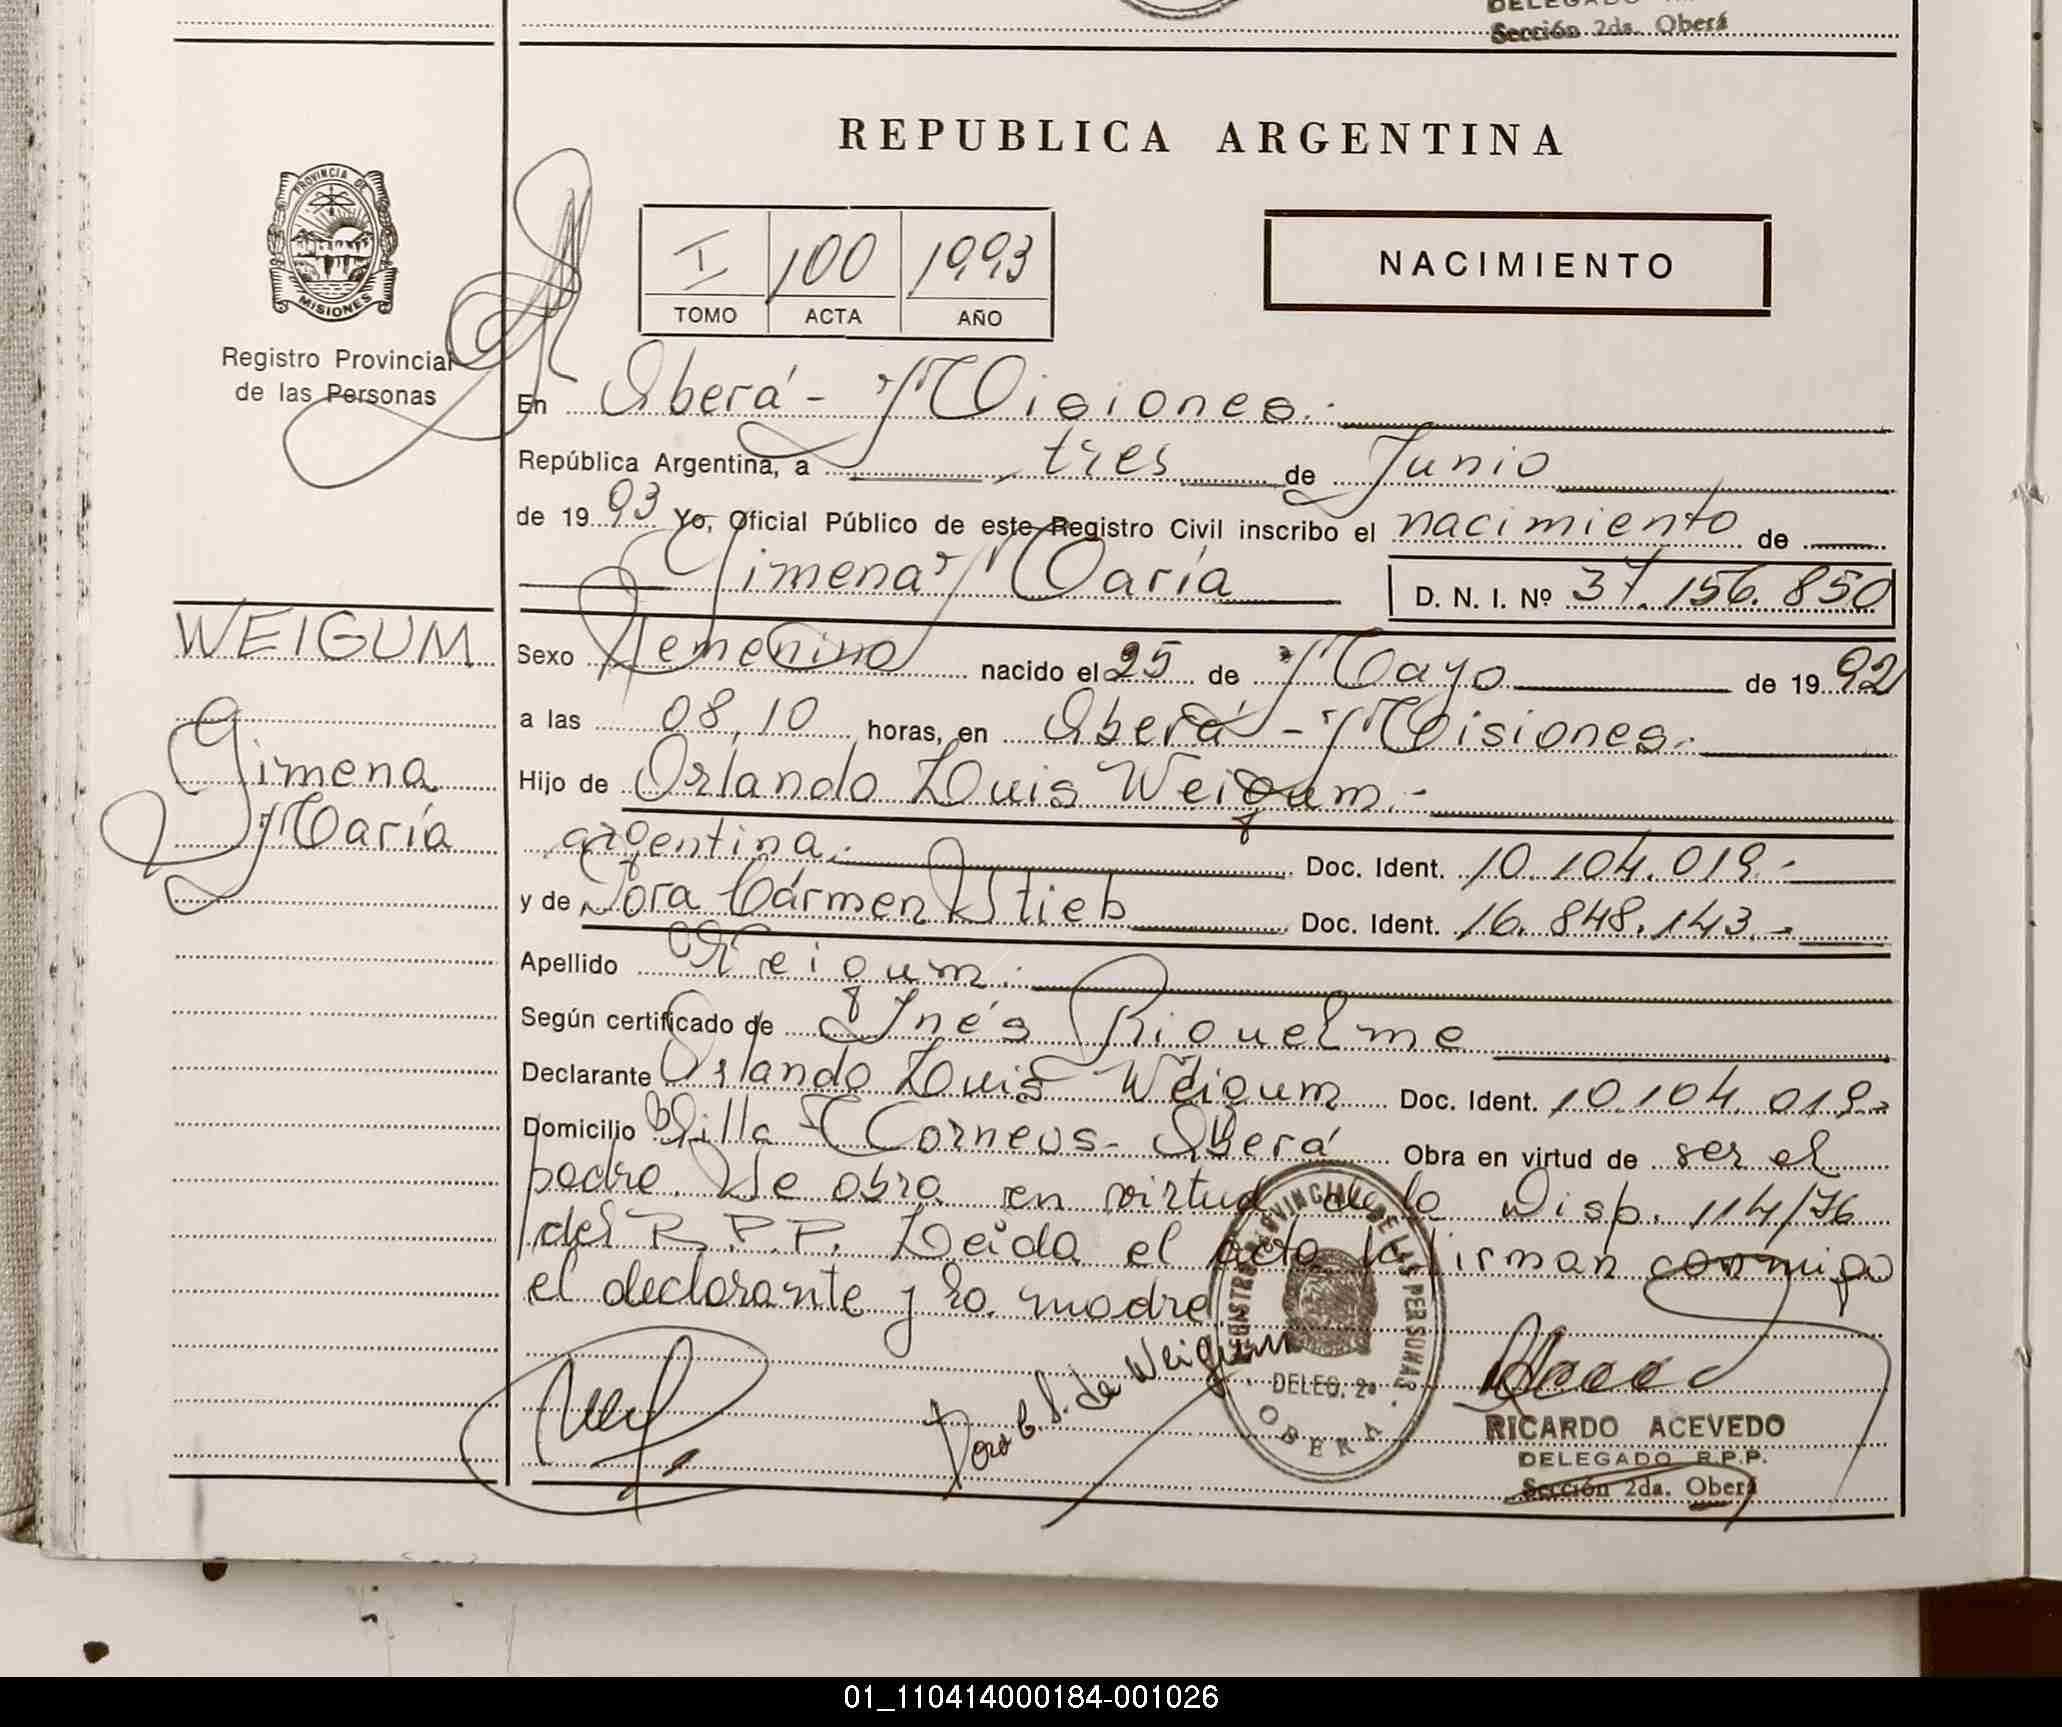 DELEGADO
Sección 2da. Oberá
REPUBLICA ARGENTINA
PROVINCIA DE
MISIONES
Registro Provincial
de las Personas
I 100 1993
TOMO ACTA AÑO
NACIMIENTO
En Oberá - Misiones.-
República Argentina, a tres de Junio
de 1993 Yo, Oficial Público de este Registro Civil inscribo el nacimiento de
Gimena María D. N. I. Nº 37.156.850
WEIGUM
Gimena
María
Sexo Femenino nacido el 25 de Mayo de 1992
a las 08,10 horas, en Oberá - Misiones.-
Hijo de Orlando Luis Weigum.-
argentina.- Doc. Ident. 10.104.019.-
y de Dora Cármen Stieb Doc. Ident. 16.848.143.-
Apellido Weigum.
Según certificado de Inés Riquelme
Declarante Orlando Luis Weigum Doc. Ident. 10.104.019.-
Domicilio Villa Torneus - Oberá Obra en virtud de ser el
padre. Se obra en virtud de la Disp. 114/76
del R.P.P. Leida el acta la firman conmigo
el declarante y la madre.
Dora C. S. de Weigum
REGISTRO PROVINCIAL DE LAS PERSONAS
DELEG. 2ª
OBERA
RICARDO ACEVEDO
DELEGADO R.P.P.
Sección 2da. Oberá
01_110414000184-001026